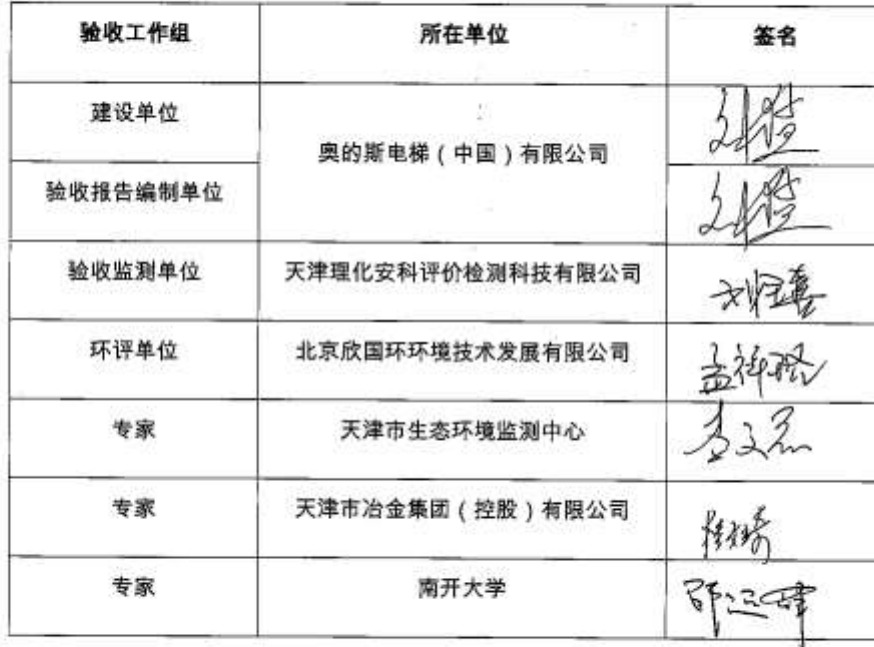 验收工作组 所在单位 签名
建设单位
奥的斯电梯（中国）有限公司
验收报告编制单位
验收监测单位 天津理化安科评价检测科技有限公司
环评单位 北京欣国环环境技术发展有限公司
专家 天津市生态环境监测中心
专家 天津市冶金集团（控股）有限公司
专家 南开大学